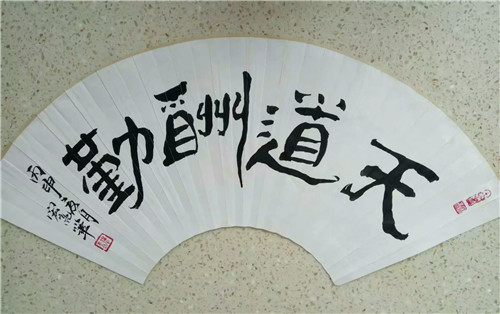 天道酬勤
丙申夏月